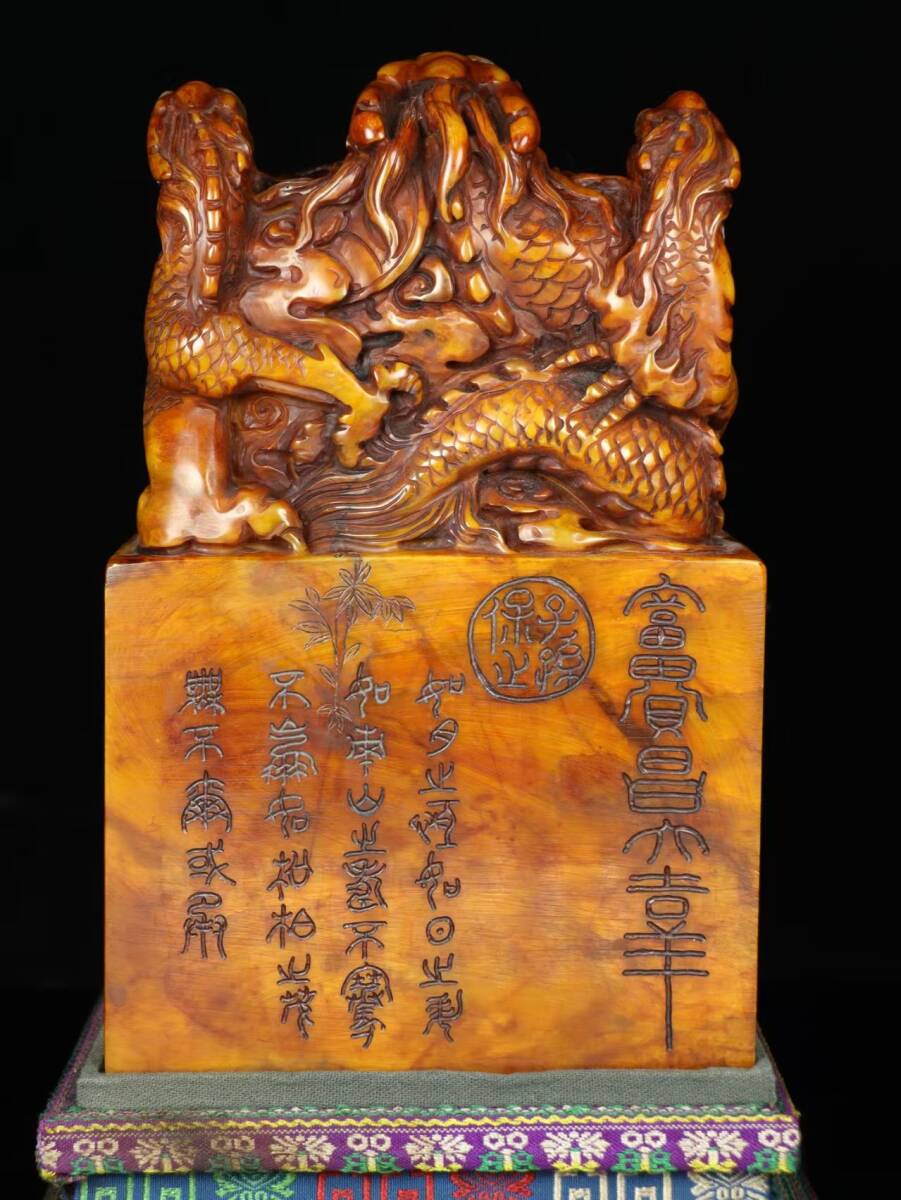 富貴昌大吉羊
子孫保之
如月之恆如日之升
如南山之壽不騫
不崩如松柏之茂
無不爾或承